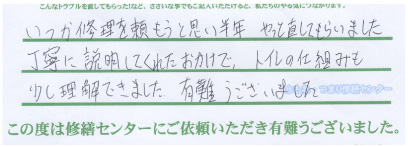 こんなトラブルを直してもらった!など、ささいな事でもご記入いただけると、私たちのやる気につながります。
いつか修理を頼もうと思い半年 やっと直してもらいました
丁寧に説明してくれたおかげで、トイレの仕組みも
少し理解できました 有難うございました
つまり修繕センター
この度は修繕センターにご依頼いただき有難うございました。